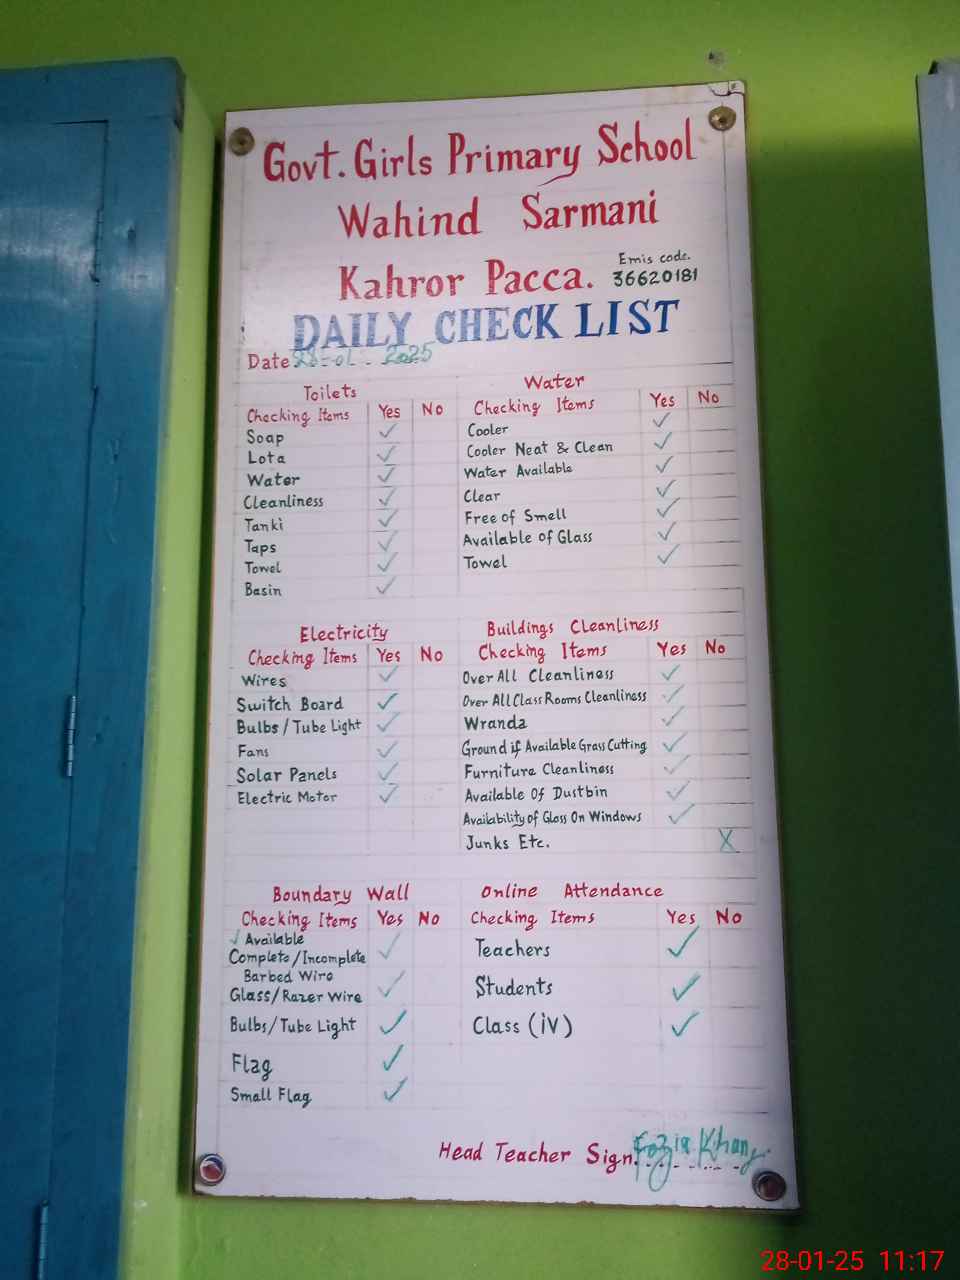 Govt. Girls Primary School
Wahind Sarmani
Kahror Pacca.
Emis code.
36620181
DAILY CHECK LIST
Date 28-01-2025
Toilets
Checking Items Yes No
Soap ✓
Lota ✓
Water ✓
Cleanliness ✓
Tanki ✓
Taps ✓
Towel ✓
Basin ✓
Water
Checking Items Yes No
Cooler ✓
Cooler Neat & Clean ✓
Water Available ✓
Clear ✓
Free of Smell ✓
Available of Glass ✓
Towel ✓
Electricity
Checking Items Yes No
Wires ✓
Switch Board ✓
Bulbs/Tube Light ✓
Fans ✓
Solar Panels ✓
Electric Motor ✓
Buildings Cleanliness
Checking Items Yes No
Over All Cleanliness ✓
Over All Class Rooms Cleanliness ✓
Wranda ✓
Ground if Available Grass Cutting ✓
Furniture Cleanliness ✓
Available Of Dustbin ✓
Availability of Glass On Windows ✓
Junks Etc. X
Boundary Wall
Checking Items Yes No
✓ Available
Complete/Incomplete ✓
Barbed Wire
Glass/Razer Wire ✓
Bulbs/Tube Light ✓
Flag ✓
Small Flag ✓
Online Attendance
Checking Items Yes No
Teachers ✓
Students ✓
Class (iv) ✓
Head Teacher Sign. Fozia Khan
28-01-25 11:17